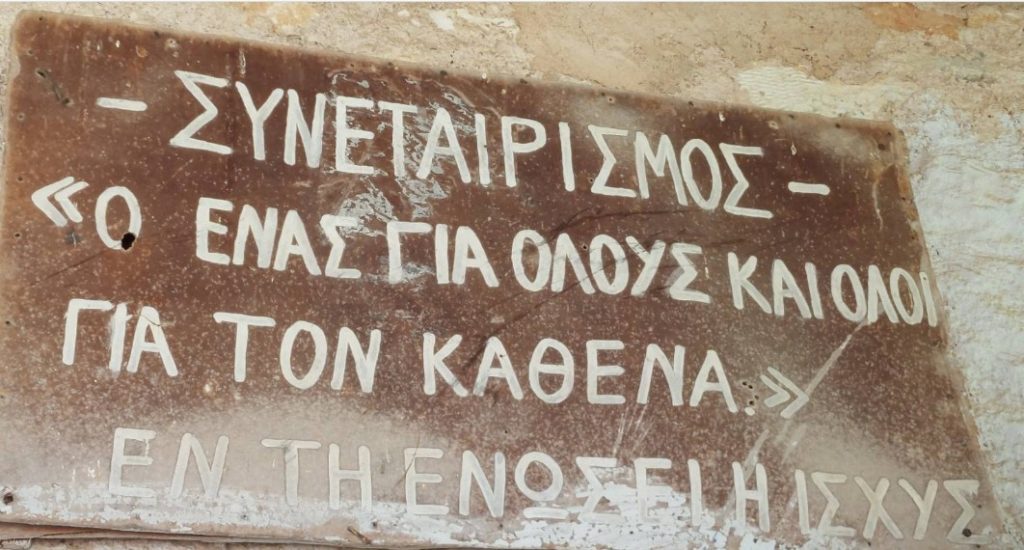 - ΣΥΝΕΤΑΙΡΙΣΜΟΣ -
«Ο ΕΝΑΣ ΓΙΑ ΟΛΟΥΣ ΚΑΙ ΟΛΟΙ
ΓΙΑ ΤΟΝ ΚΑΘΕΝΑ.»
ΕΝ ΤΗ ΕΝΩΣΕΙ Η ΙΣΧΥΣ